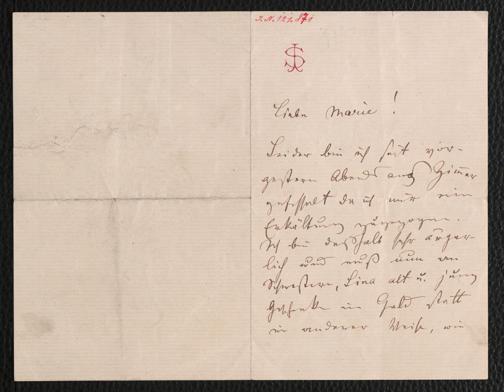 I. N. 121.871
JS
Liebe Marie!
Leider bin ich seit vor-
gestern Abends ans Zimmer
gefesselt da ich mir eine
Erkältung zugezogen.
Ich bin deßhalb sehr ärger-
lich und muß nun an
Schwestern, Lina alt u. jung
Geschenke in Geld statt
in anderer Weise, wie